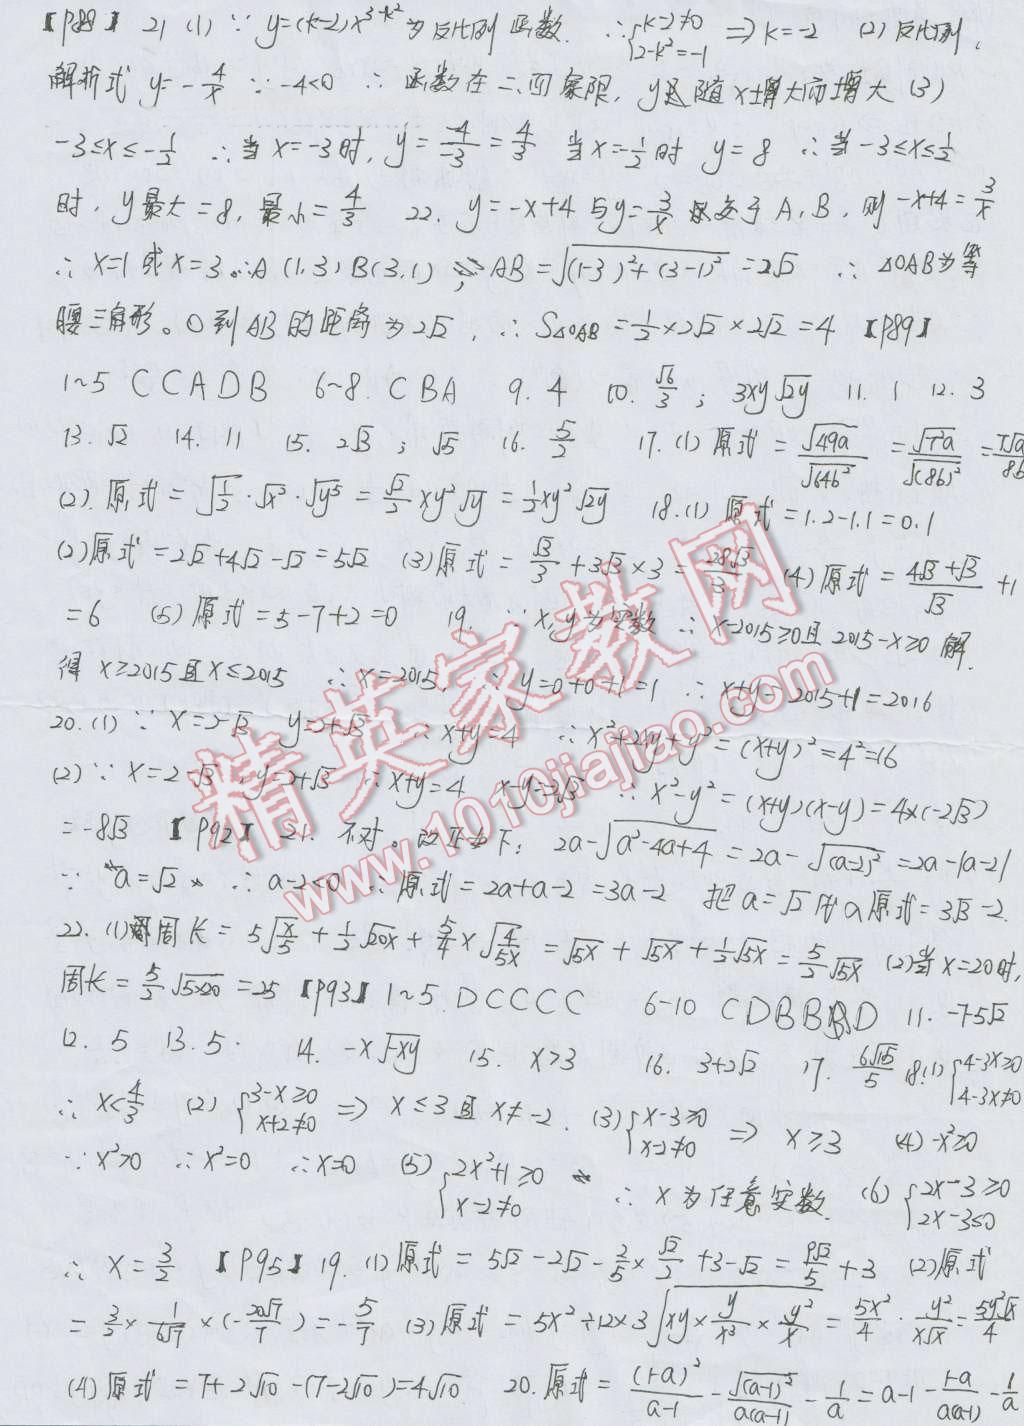 【P88】 21 (1) ∵ y=(k-2)x^{3-k²}为反比例函数. ∴{k-2≠0 2-k²=-1 ⇒ k=-2 (2) 反比例,
解析式 y=-4/x ∵ -4<0 ∴ 函数在二、四象限, y随x增大而增大 (3)
-3≤x≤-1/2 ∴当 x=-3时, y=-4/-3=4/3 当x=-1/2时 y=8 ∴当-3≤x≤1/2
时, y最大=8, 最小=4/3 22. y=-x+4 与y=3/x 交于 A, B, 则 -x+4=3/x
∴ x=1 或 x=3 ∴A (1,3) B(3,1) AB=√((1-3)²+(3-1)²)=2√2 ∴ △OAB为等
腰三角形。O到AB的距离为2√2, ∴ S△OAB=1/2×2√2×2√2=4 【P89】
1~5 CCADB 6~8. CBA 9. 4 10. √6/3 ; 3xy√2y 11. 1 12. 3
13. √2 14. 11 15. 2√3 ; √5 16. 5/2 17. (1) 原式=√49a/√64b² =√7²a/√(8b)² =7√a/8b
(2). 原式=√1/2·√x²·√y⁵=√2/2xy²√y=1/2xy²√2y 18.(1) 原式=1.2-1.1=0.1
(2)原式=2√2+4√2-√2=5√2 (3)原式=√3/3+3√3×3=28√3/3 (4)原式=4√3+√3/√3+1
=6 (5) 原式=5-7+2=0 19. ∵ x, y为实数 ∴ x-2015≥0且2015-x≥0 解.
得 x≥2015且x≤2015 ∴x=2015, ∵ y=0+0+1=1 ∴ x+y=2015+1=2016
20.(1) ∵ x=2-√3 y=2+√3 ∴ x+y=4 ∴ x²+2xy+y²=(x+y)²=4²=16
(2) ∵ x=2-√3, y=2+√3 ∴x+y=4 x-y=-2√3 ∴ x²-y²=(x+y)(x-y)=4×(-2√3)
=-8√3 【P92】 21. 不对。改正如下: 2a-√(a²-4a+4)=2a-√(a-2)²=2a-|a-2|
∵ a=√2 ∴ a-2<0 ∴原式=2a+a-2=3a-2 把a=√2代入原式=3√2-2.
22. (1)周长=5√x/5+1/2√20x+5/4x√4/5x=√5x+√5x+1/2√5x=5/2√5x (2)当x=20时,
周长=5/2√5×20=25 【P93】 1~5. DCCCC 6-10 CDBBD 11. -7-5√2
12. 5 13. 5. 14. -x√-xy 15. x>3 16. 3+2√2 17. 6√15/5 18.(1){4-3x≥0 4-3x≠0
∴ x<4/3 (2) {3-x≥0 x+2≠0 ⇒ x≤3且x≠-2. (3){x-3≥0 x-2≠0 ⇒ x≥3 (4) -x²≥0
∵ x²≥0 ∴ x²=0 ∴x=0 (5) {2x²+1≥0 x-2≠0 ∴ x为任意实数. (6) {2x-3≥0 2x-3≤0
∴ x=3/2 【P95】 19. (1)原式=5√2-2√2-2/5×√2/2+3-√2=9√2/5+3 (2)原式
=3/2×1/6√7×(-20√7/7)=-5/7 (3)原式=5x²÷12×3√(xy×y/x³×y²/x)=5x²/4·y²/x√x=5y²√x/4
(4)原式=7+2√10-(7-2√10)=4√10 20. 原式=(1-a)²/a-1-√(a-1)²/a(a-1)-1/a=a-1-1-a/a(a-1)-1/a
精英家教网
www.1010jiajiao.com